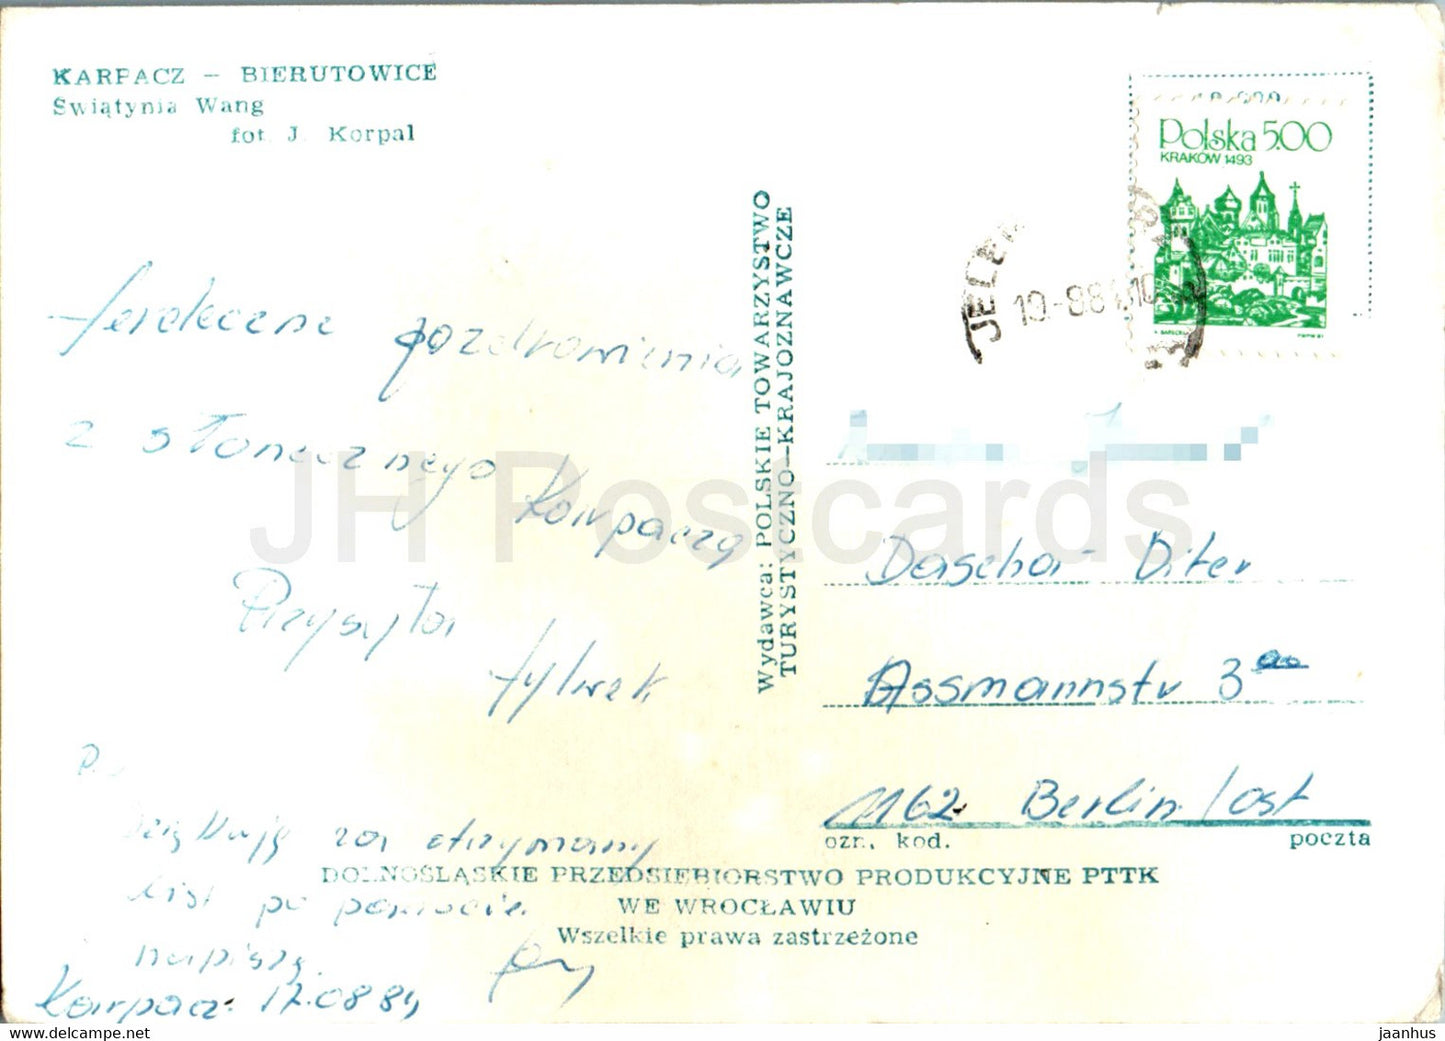 KARPACZ – BIERUTOWICE
Świątynia Wang
fot. J. Korpal
Polska 5.00
KRAKÓW 1493
JELEN
10.-8.84.-10
Serdeczne pozdrowienia
z słonecznego Karpacza
Przysyła
Sylwek
P.
Dziękuję za otrzymany
list po powrocie
napiszę.
Karpacz. 17.08.84
Wydawca: POLSKIE TOWARZYSTWO
TURYSTYCZNO–KRAJOZNAWCZE
Dascha- Diter
Assmannstr 3
1162 Berlin/ost
ozn. kod.
poczta
DOLNOŚLĄSKIE PRZEDSIĘBIORSTWO PRODUKCYJNE PTTK
WE WROCŁAWIU
Wszelkie prawa zastrzeżone
JH Postcards
www.delcampe.net
jaanhus